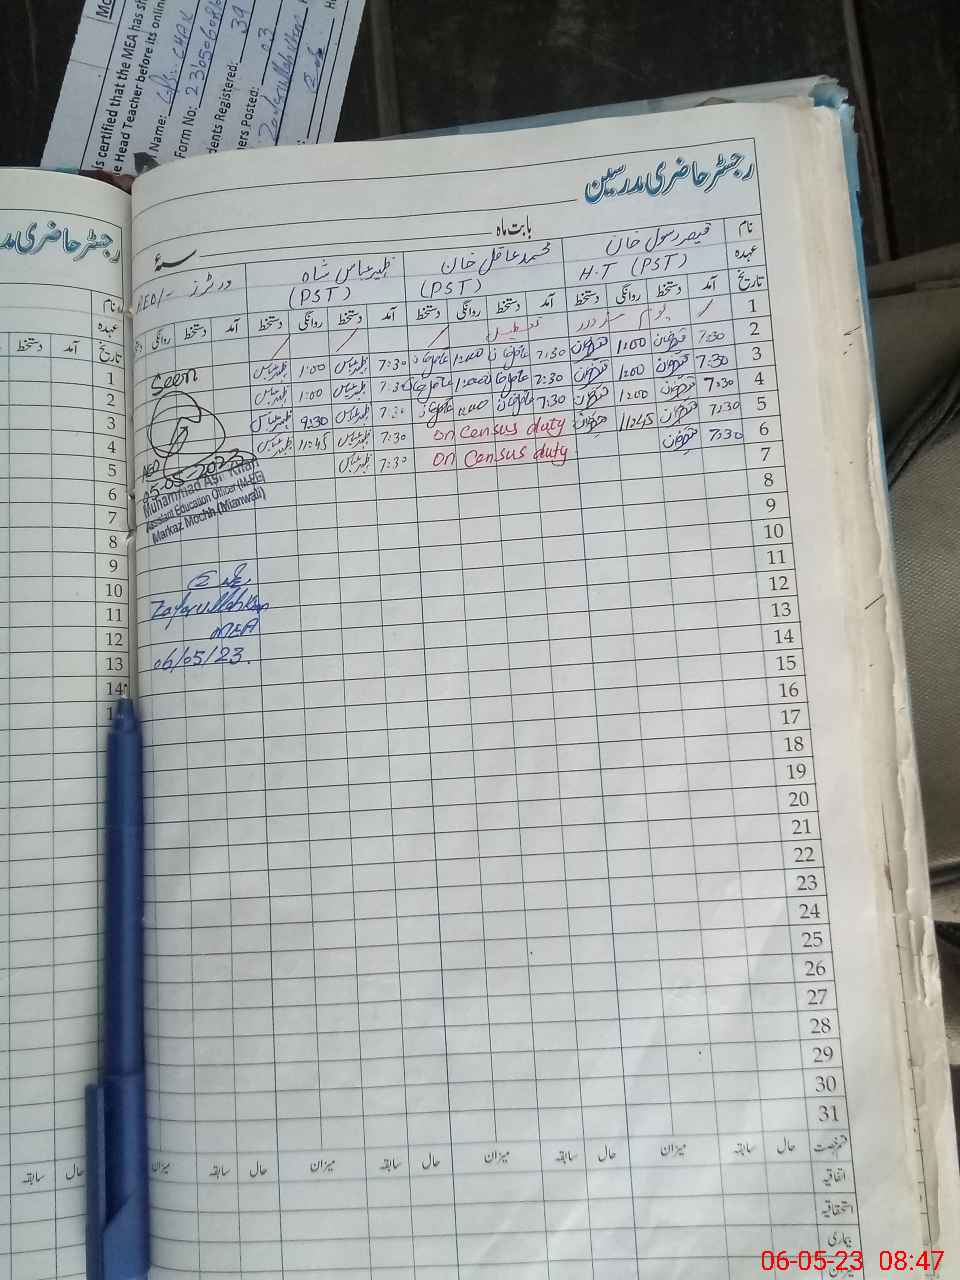 is certified that the MEA has
Head Teacher before its online
Name: GPS: CHAK
Form No:
dents Registered: 39
ers Posted: 03
Zafarullah Khan
رجسٹر حاضری مدرسین
بابت ماہ
سنہ
نام قیصر رسول خان محمد عاقل خان ظہیر عباس شاہ وزٹرز
عہدہ H.T (PST) (PST) (PST) AEO/-
تاریخ آمد دستخط روانگی دستخط آمد دستخط روانگی دستخط آمد دستخط روانگی دستخط آمد دستخط روانگی
1 یوم مزدور تعطیل
2 7:30 1:00 7:30 1:00 7:30 1:00
3 7:30 1:00 7:30 1:00 7:30 1:00
4 7:30 1:00 7:30 7:30 9:30
5 7:30 11:45 on census duty 7:30 11:45
6 7:30 on census duty 7:30
7
8
9
10
11
12
13
14
15
16
17
18
19
20
21
22
23
24
25
26
27
28
29
30
31
Seen
AEO
05-05-2023
Muhammad Asif Khan
Assistant Education Officer (M-EE)
Markaz Mochh (Mianwali)
Zafarullah Khan
MEA
06/05/23.
حال سابقہ میزان حال سابقہ میزان حال سابقہ میزان حال سابقہ میزان
اتفاقیہ
استحقاقیہ
بیماری
میزان
رجسٹر حاضری مد
نام
عہدہ
تاریخ آمد دستخط
1
2
3
4
5
6
7
8
9
10
11
12
13
14
حال سابقہ
06-05-23 08:47